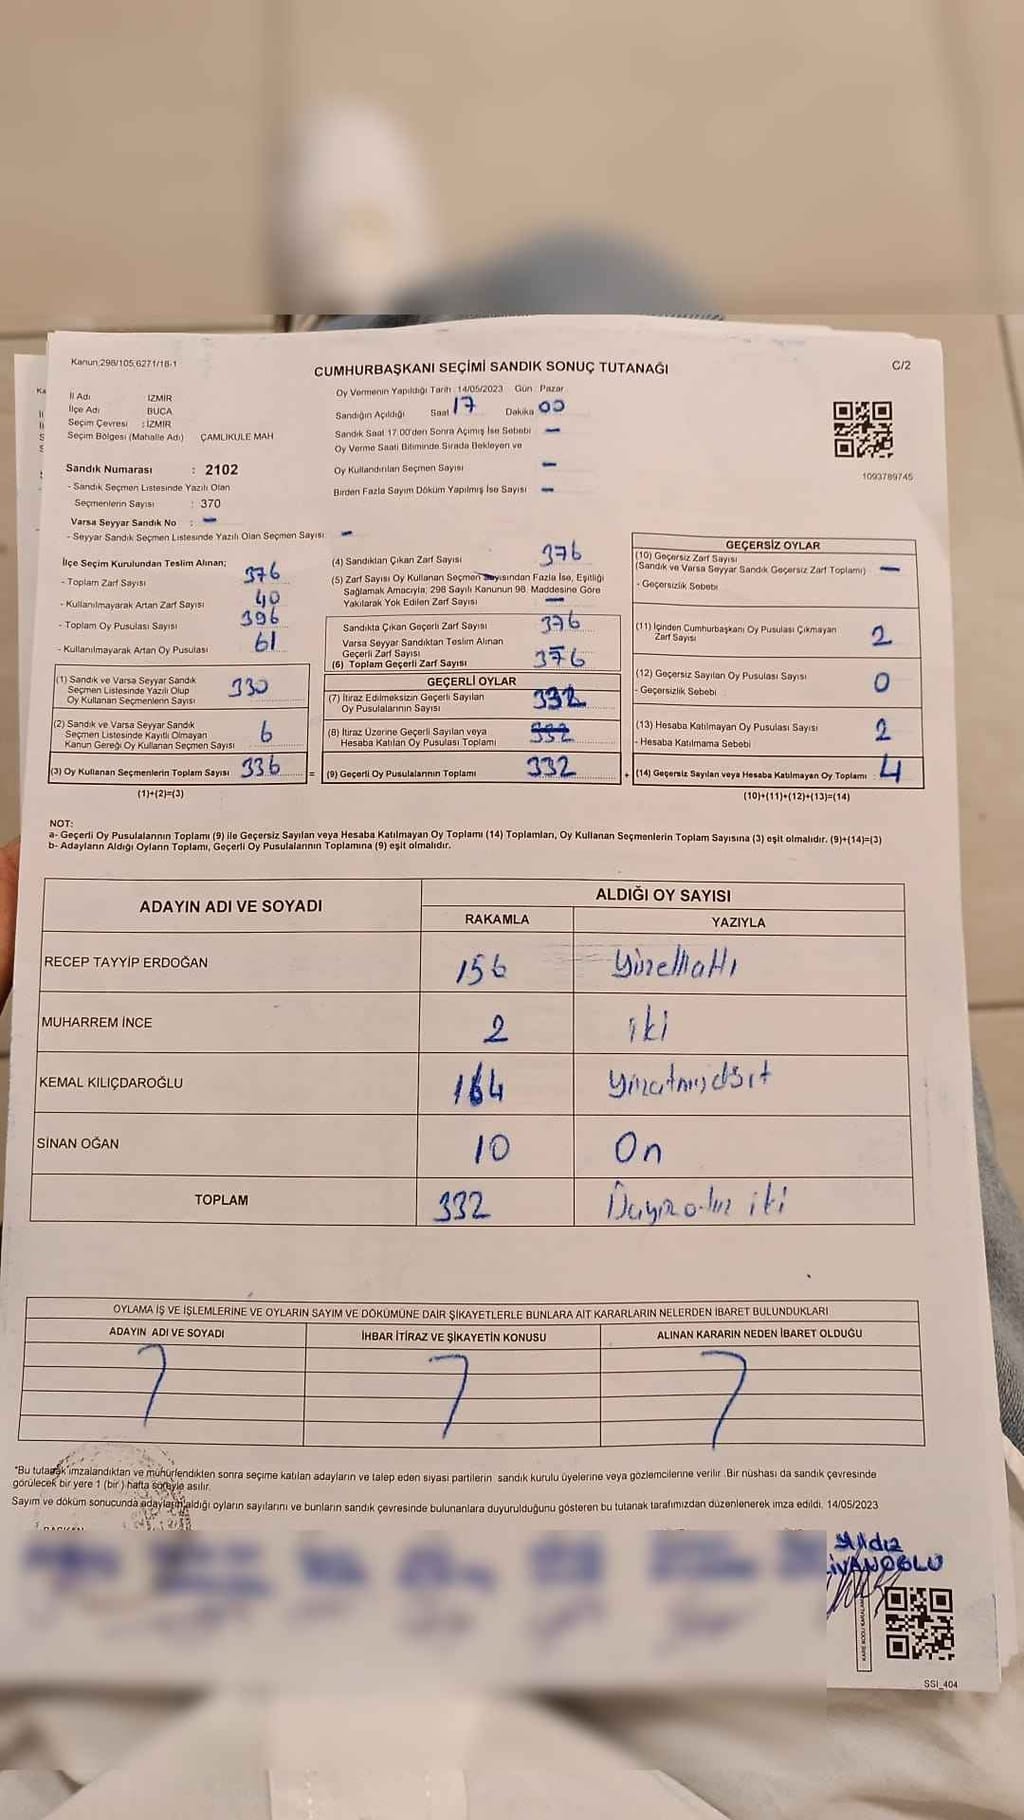 Kanun,298/105,6271/18-1
CUMHURBAŞKANI SEÇİMİ SANDIK SONUÇ TUTANAĞI
C/2
İl Adı İZMİR
İlçe Adı BUCA
Seçim Çevresi : İZMİR
Seçim Bölgesi (Mahalle Adı) ÇAMLIKULE MAH
Sandık Numarası : 2102
- Sandık Seçmen Listesinde Yazılı Olan
Seçmenlerin Sayısı : 370
Varsa Seyyar Sandık No : –
- Seyyar Sandık Seçmen Listesinde Yazılı Olan Seçmen Sayısı: –
Oy Vermenin Yapıldığı Tarih :14/05/2023 Gün : Pazar
Sandığın Açıldığı Saat 17 Dakika 00
Sandık Saat 17.00'den Sonra Açımış İse Sebebi –
Oy Verme Saati Bitiminde Sırada Bekleyen ve
Oy Kullandırılan Seçmen Sayısı –
Birden Fazla Sayım Döküm Yapılmış İse Sayısı –
1093789745
İlçe Seçim Kurulundan Teslim Alınan;
- Toplam Zarf Sayısı 376
- Kullanılmayarak Artan Zarf Sayısı 40
- Toplam Oy Pusulası Sayısı 396
- Kullanılmayarak Artan Oy Pusulası 61
(1) Sandık ve Varsa Seyyar Sandık
Seçmen Listesinde Yazılı Olup
Oy Kullanan Seçmenlerin Sayısı 330
(2) Sandık ve Varsa Seyyar Sandık
Seçmen Listesinde Kayıtlı Olmayan
Kanun Gereği Oy Kullanan Seçmen Sayısı 6
(3) Oy Kullanan Seçmenlerin Toplam Sayısı 336 =
(1)+(2)=(3)
(4) Sandıktan Çıkan Zarf Sayısı 376
(5) Zarf Sayısı Oy Kullanan Seçmen Sayısından Fazla İse, Eşitliği
Sağlamak Amacıyla, 298 Sayılı Kanunun 98. Maddesine Göre
Yakılarak Yok Edilen Zarf Sayısı –
Sandıkta Çıkan Geçerli Zarf Sayısı 376
Varsa Seyyar Sandıktan Teslim Alınan
Geçerli Zarf Sayısı
(6) Toplam Geçerli Zarf Sayısı 376
GEÇERLİ OYLAR
(7) İtiraz Edilmeksizin Geçerli Sayılan
Oy Pusulalarının Sayısı 332
(8) İtiraz Üzerine Geçerli Sayılan veya
Hesaba Katılan Oy Pusulası Toplamı 332
(9) Geçerli Oy Pusulalarının Toplamı 332 +
GEÇERSİZ OYLAR
(10) Geçersiz Zarf Sayısı
(Sandık ve Varsa Seyyar Sandık Geçersiz Zarf Toplamı) –
- Geçersizlik Sebebi
(11) İçinden Cumhurbaşkanı Oy Pusulası Çıkmayan
Zarf Sayısı 2
(12) Geçersiz Sayılan Oy Pusulası Sayısı 0
- Geçersizlik Sebebi
(13) Hesaba Katılmayan Oy Pusulası Sayısı 2
- Hesaba Katılmama Sebebi
(14) Geçersiz Sayılan veya Hesaba Katılmayan Oy Toplamı : 4
(10)+(11)+(12)+(13)=(14)
NOT:
a- Geçerli Oy Pusulalarının Toplamı (9) ile Geçersiz Sayılan veya Hesaba Katılmayan Oy Toplamı (14) Toplamları, Oy Kullanan Seçmenlerin Toplam Sayısına (3) eşit olmalıdır. (9)+(14)=(3)
b- Adayların Aldığı Oyların Toplamı, Geçerli Oy Pusulalarının Toplamına (9) eşit olmalıdır.
ADAYIN ADI VE SOYADI
ALDIĞI OY SAYISI
RAKAMLA YAZIYLA
RECEP TAYYİP ERDOĞAN 156 Yüzellialtı
MUHARREM İNCE 2 iki
KEMAL KILIÇDAROĞLU 164 yüzatmışdört
SİNAN OĞAN 10 On
TOPLAM 332 iki
OYLAMA İŞ VE İŞLEMLERİNE VE OYLARIN SAYIM VE DÖKÜMÜNE DAİR ŞİKAYETLERLE BUNLARA AİT KARARLARIN NELERDEN İBARET BULUNDUKLARI
ADAYIN ADI VE SOYADI İHBAR İTİRAZ VE ŞİKAYETİN KONUSU ALINAN KARARIN NEDEN İBARET OLDUĞU
*Bu tutanak imzalandıktan ve mühürlendikten sonra seçime katılan adayların ve talep eden siyasi partilerin sandık kurulu üyelerine veya gözlemcilerine verilir .Bir nüshası da sandık çevresinde
görülecek bir yere 1 (bir) hafta süreyle asılır.
Sayım ve döküm sonucunda adayların aldığı oyların sayılarını ve bunların sandık çevresinde bulunanlara duyurulduğunu gösteren bu tutanak tarafımızdan düzenlenerek imza edildi. 14/05/2023
Yıldız
LİVANOĞLU
SSI_404